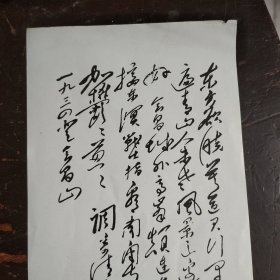 东方欲晓莫道君行早
踏遍青山人未老风景这边
好会昌城外高峰颠连
接东溟战士指看南粤
郁郁葱葱 调
一九三四登会昌山